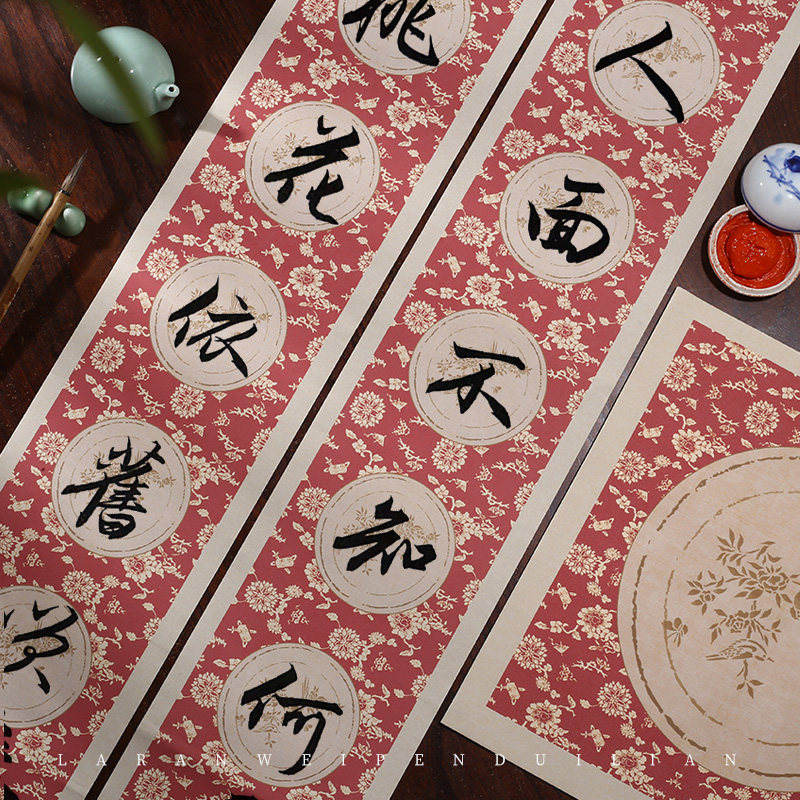 人面不知何
桃花依舊笑
LARANWEIPENDUILIAN